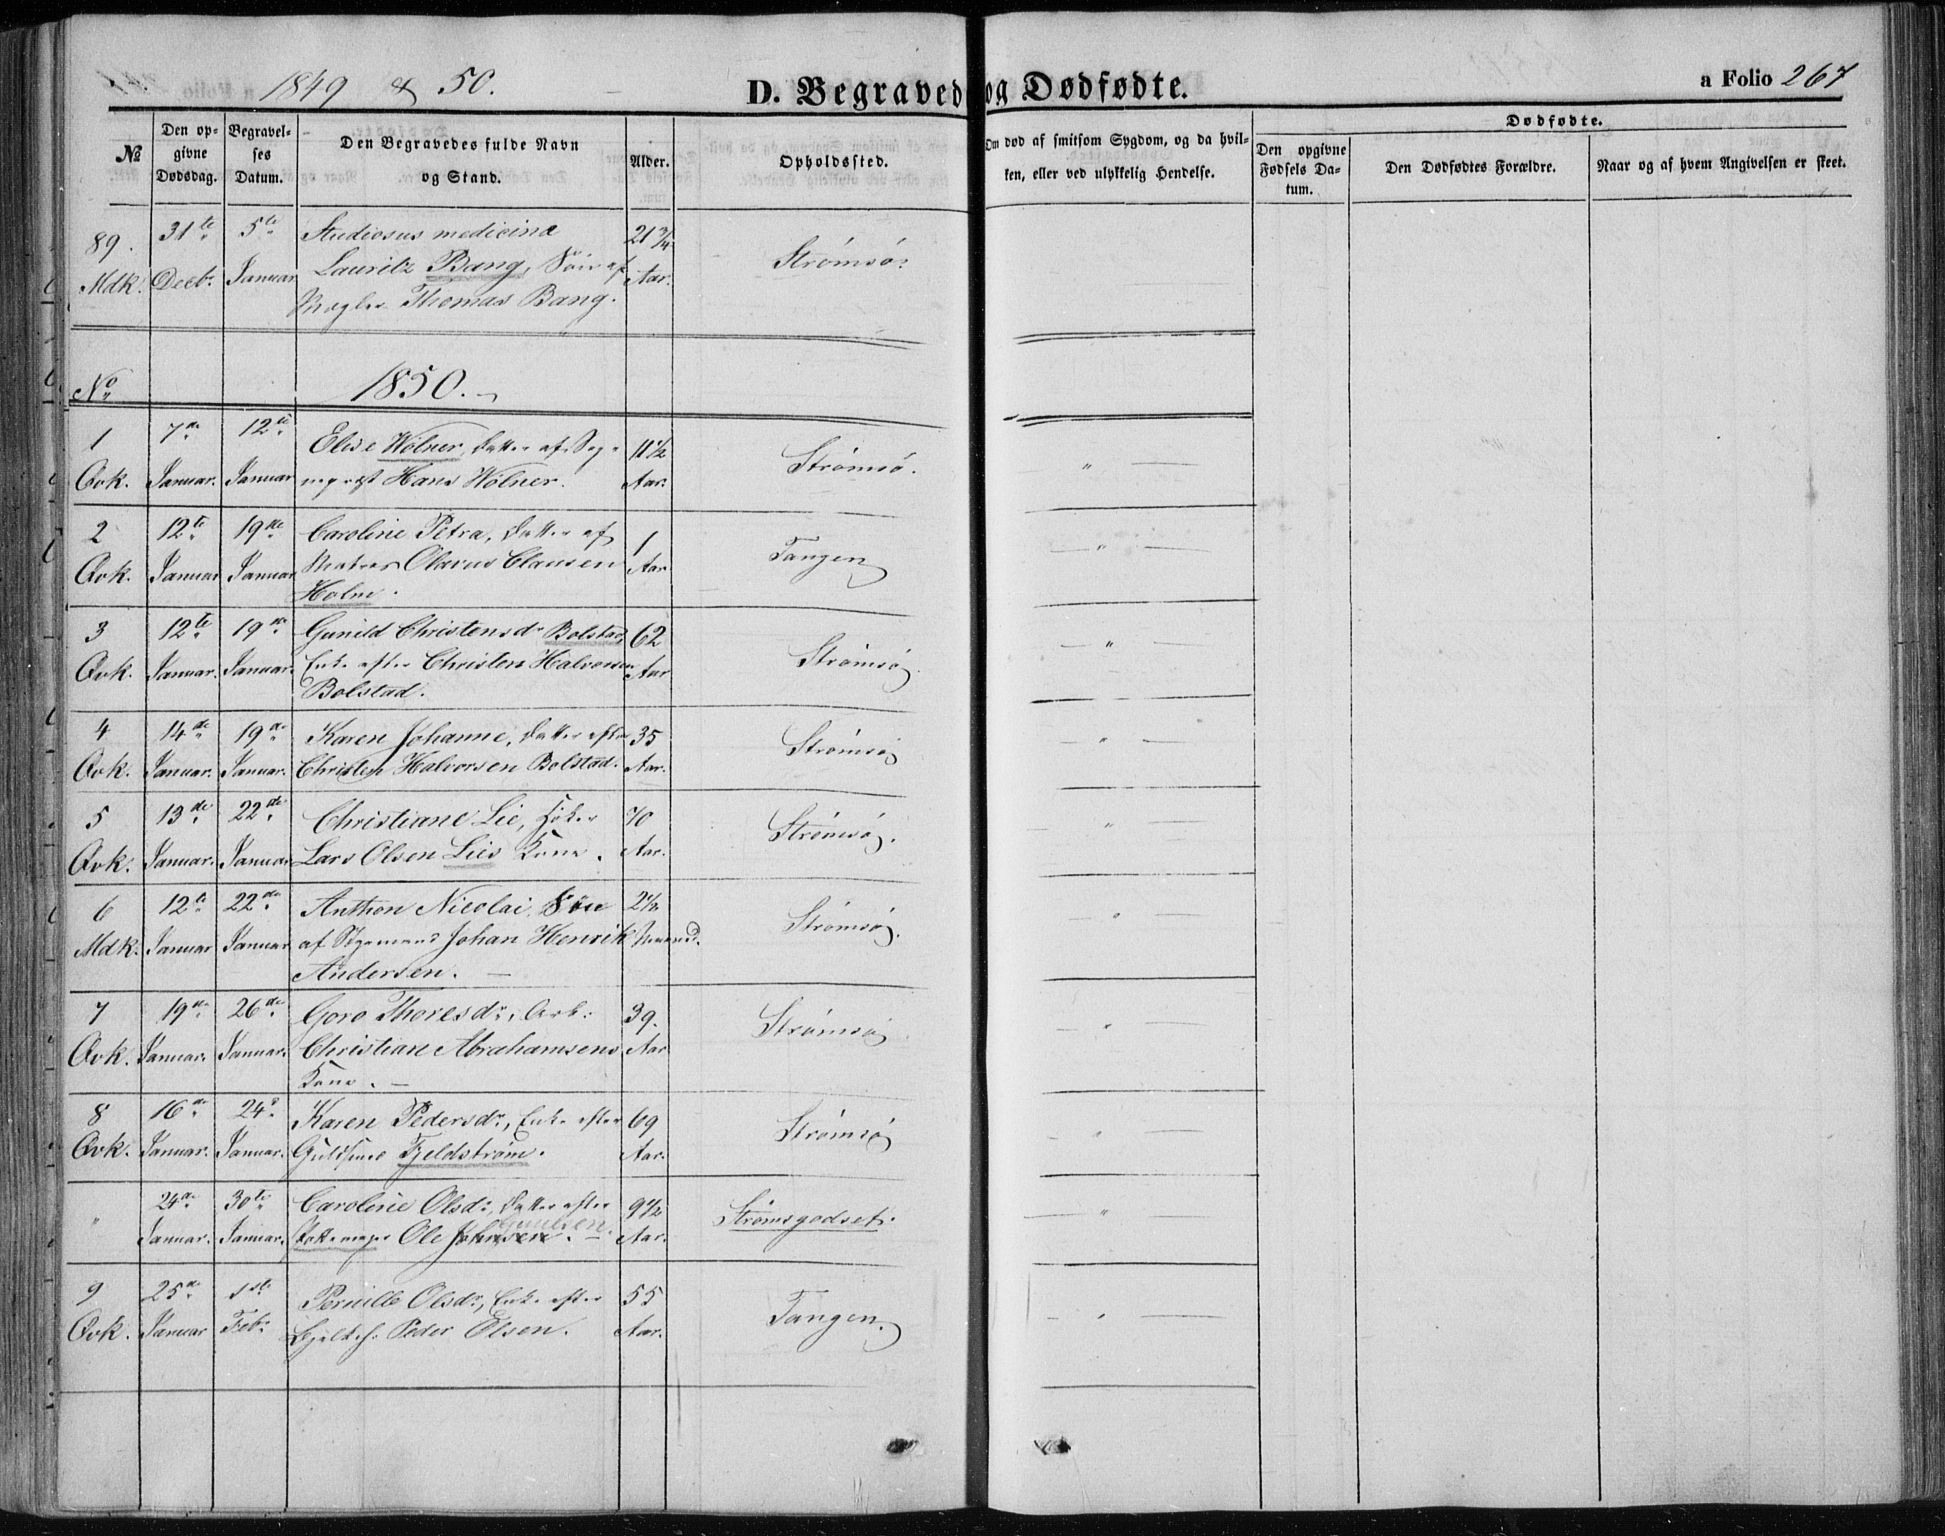 1849 & 50.
D. Begravede og Dødfødte.
a Folio 267
No
Den opgivne Dødsdag.
Begravelses Datum.
Den Begravedes fulde Navn og Stand.
Alder.
Opholdssted.
Om død af smitsom Sygdom, og da hvilken, eller ved ulykkelig Hendelse.
Dødfødte.
Den opgivne Fødsels Datum.
Den Dødfødtes Forældre.
Naar og af hvem Angivelsen er skeet.
89. 31te 5te Studiosus medicina 21 3/4
Mdk. Decbr. Januar Lauritz Bang, Søn af Aar. Strømsø.
Mægler Thomas Bang.
No 1850.
1 7de 12te Elise Wølner, Datter af Sog- 11 1/2 Strømsø. "
Qvk. Januar. Januar nepræst Hans Wølner. Aar.
2 12te 19de Caroline Petra, Datter af 1 Tangen "
Qvk. Januar Januar Matros Olavus Clausen Aar
Holm.
3 12te 19de Gunild Christensdr Bolstad, 62 Strømsø. "
Qvk. Januar. Januar. Enke efter Christen Halvorsen Aar
Bolstad.
4 14de 19de Karen Johanne, Datter efter 35 Strømsø "
Qvk. Januar. Januar. Christen Halvorsen Bolstad. Aar.
5 13de 22de Christiane Lie, Høker 70 Strømsø. "
Qvk. Januar. Januar Lars Olsen Lies Kone. Aar.
6 12te 22de Anthon Nicolai, Søn 2 1/2 Strømsø. "
Mdk. Januar Januar af Sømand Johan Henrik Maaned.
Andersen.
7 19de 26de Goro Thoresdr, Arb. 39. Strømsø "
Qvk. Januar. Januar. Christian Abrahamsens Aar
Kone.
8 16de 24de Karen Pedersdr, Enke efter 69 Strømsø "
Qvk. Januar. Januar. Guldsmed Fjeldstrøm. Aar.
" 24de 30te Caroline Olsdr, Datter efter 9 1/2 Strømsgodset. "
Januar. Januar. Ole Johnsen. Aar.
9 25de 1ste Pernille Olsdr, Enke efter 55 Tangen. "
Qvk. Januar Febr. Peder Olsen. Aar.